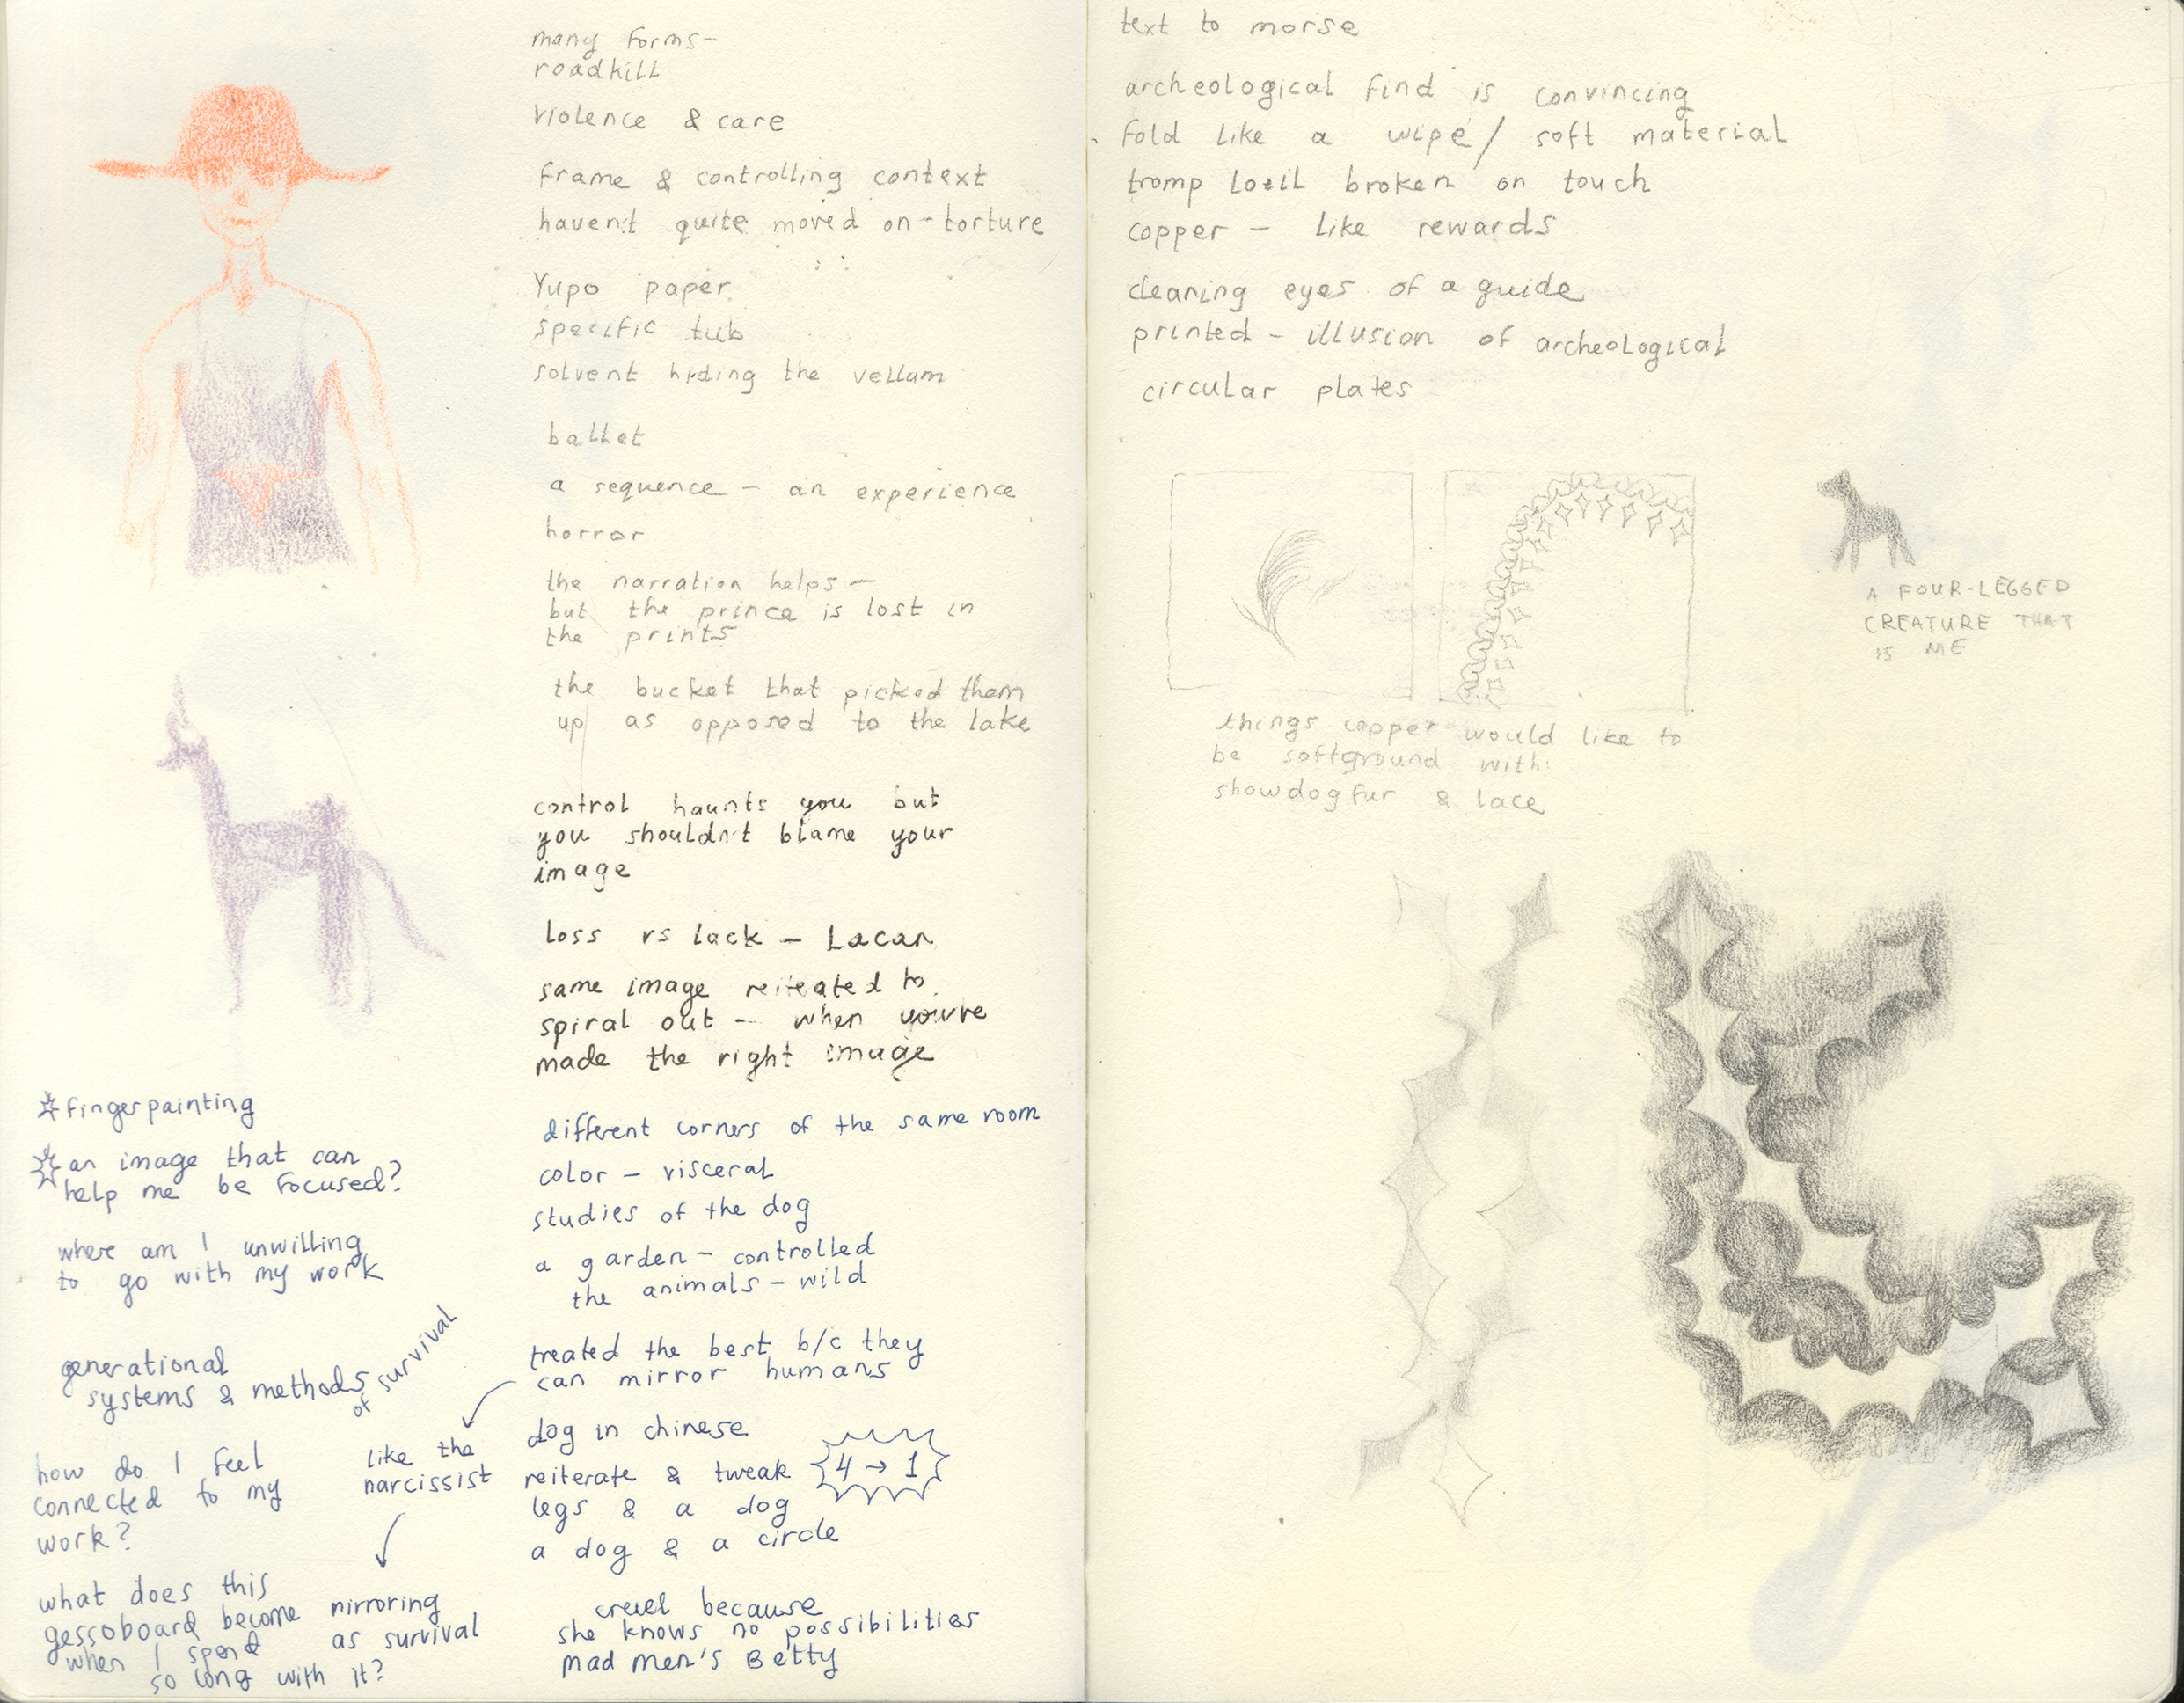 many forms-
roadkill
violence & care
frame & controlling context
haven't quite moved on - torture
Yupo paper
specific tub
solvent hiding the vellum
ballet
a sequence - an experience
horror
the narration helps -
but the prince is lost in
the prints
the bucket that picked them
up as opposed to the lake
control haunts you but
you shouldn't blame your
image
loss vs lack - Lacan
same image reiteated to
spiral out - when you're
made the right image
different corners of the same room
color - visceral
studies of the dog
a garden - controlled
the animals - wild
treated the best b/c they
can mirror humans
like the
narcissist
mirroring
as survival
dog in chinese
reiterate & tweak
4 → 1
legs & a dog
a dog & a circle
cruel because
she knows no possibilities
mad men's Betty
fingerpainting
an image that can
help me be focused?
where am I unwilling
to go with my work
generational
systems & methods
of survival
how do I feel
connected to my
work?
what does this
gessoboard become
when I spend
so long with it?
text to morse
archeological find is convincing
fold like a wipe/ soft material
tromp loeil broken on touch
copper - like rewards
cleaning eyes of a guide
printed - illusion of archeological
circular plates
A FOUR-LEGGED
CREATURE THAT
IS ME
things copper would like to
be softground with:
showdog fur & lace